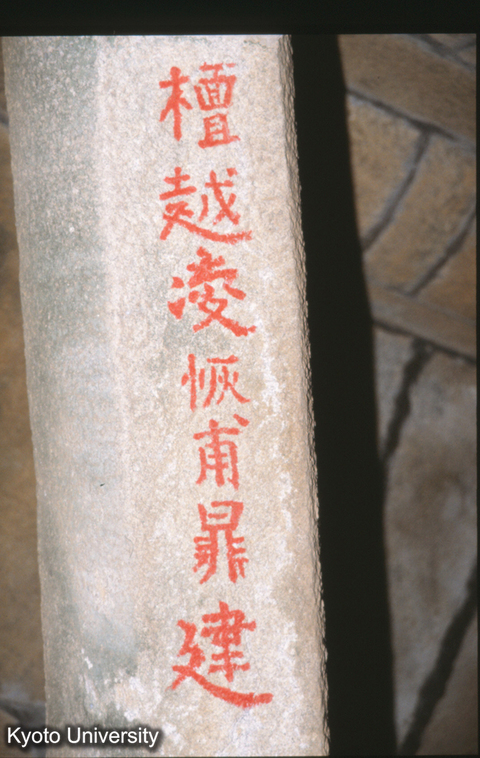 檀越凌恢甫鼎建
Kyoto University